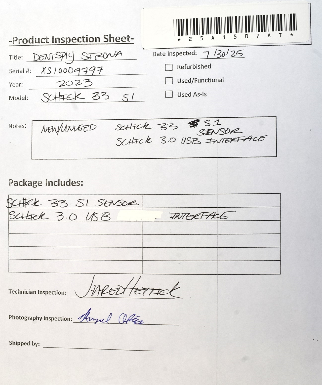 -Product Inspection Sheet-
Title: DENTSPLY SIRONA
Date Inspected: 7/30/25
Serial #: XS10009797
Year: 2023
Model: SCHICK 33 S1
Refurbished
Used/Functional
Used As-Is
Notes: NEW/UNUSED SCHICK 33 S1 SENSOR
SCHICK 3.0 USB INTERFACE
Package includes:
SCHICK 33 S1 SENSOR
SCHICK 3.0 USB INTERFACE
Technician Inspection:
Photography Inspection:
Shipped by: